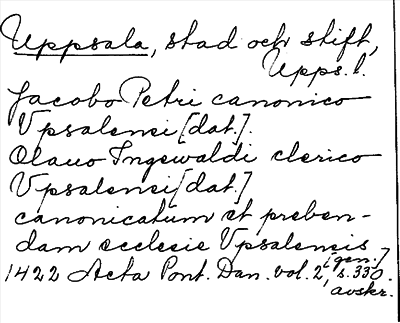 Uppsala, stad och stift,
Upps. l.
Jacobo Petri canonico
Vpsalensi [dat.].
Olauo Ingewaldi clerico
Vpsalensi [dat.]
canonicatum et preben-
dam ecclesie Vpsalensis
[gen.]
1422 Acta Pont. Dan. vol. 2, s. 330.
avskr.